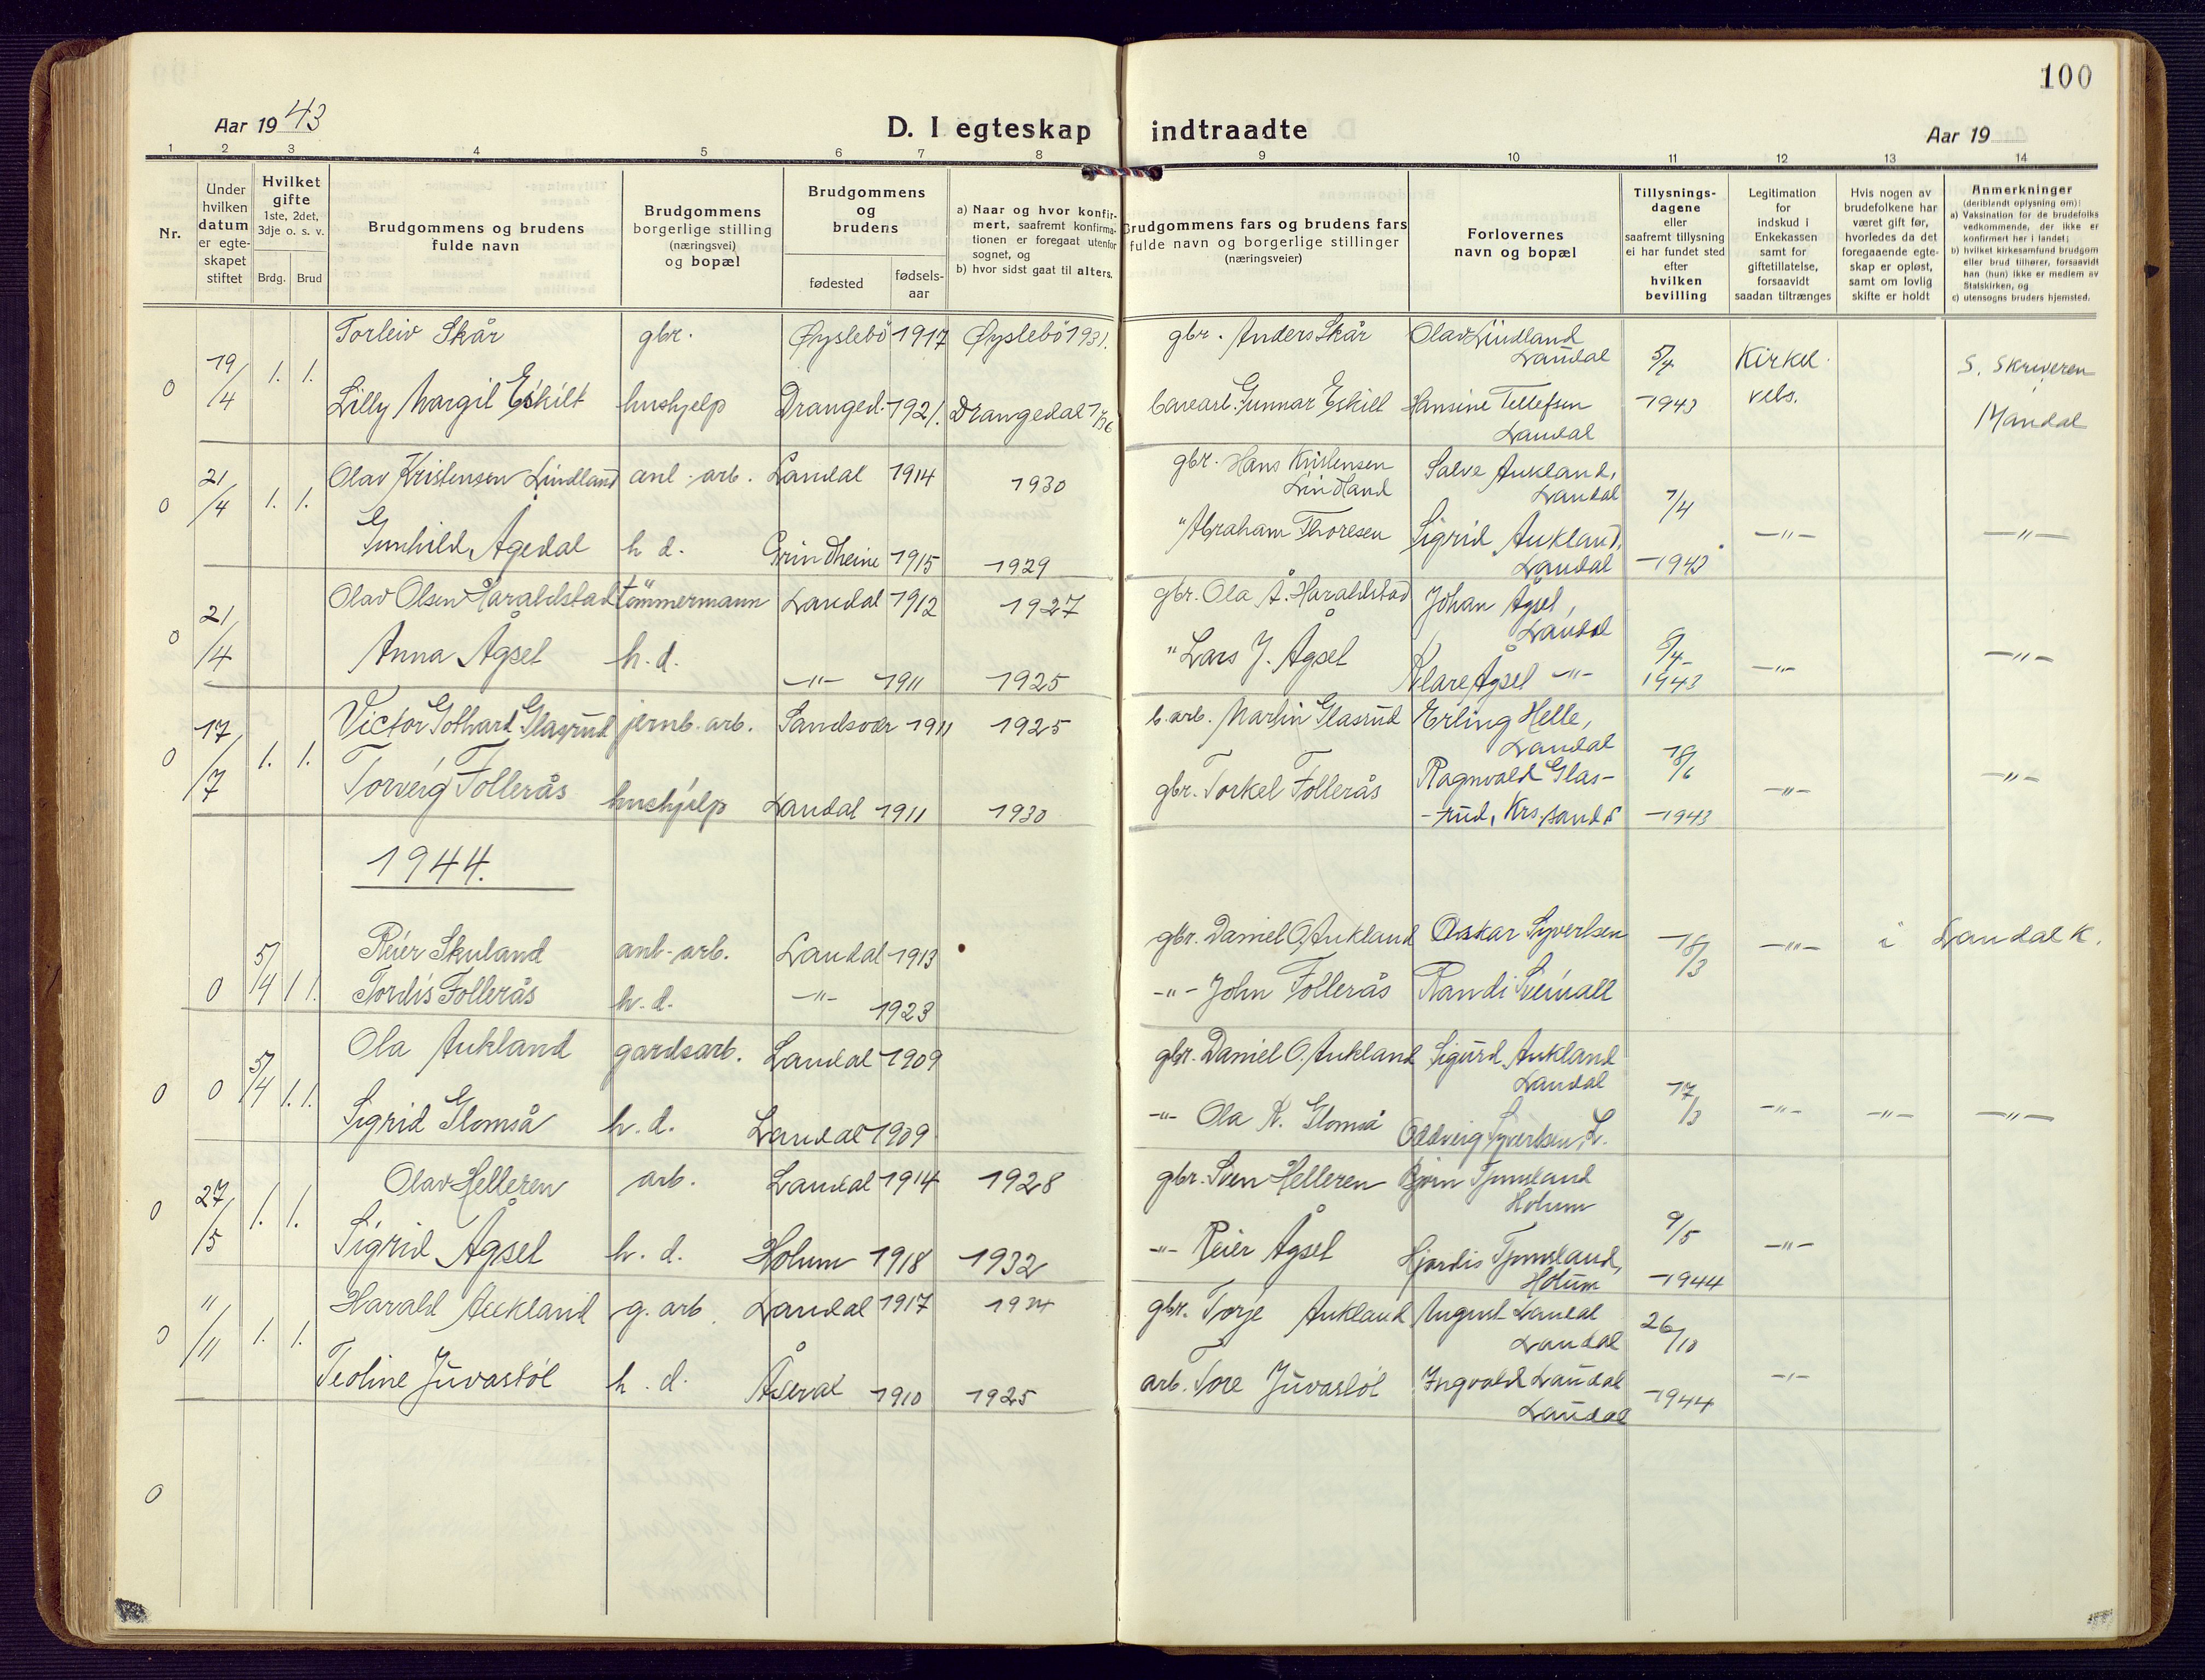 100
Aar 1943
D. I egteskap indtraadte
Aar 19
1 2 3 4 5 6 7 8 9 10 11 12 13 14
Nr.
Under hvilken datum er egteskapet stiftet
Hvilket gifte 1ste, 2det, 3dje o. s. v.
Brdg. Brud
Brudgommens og brudens fulde navn
Brudgommens borgerlige stilling (næringsvei) og bopæl
Brudgommens og brudens
fødested
fødsels-aar
a) Naar og hvor konfirmert, saafremt konfirmationen er foregaat utenfor sognet, og
b) hvor sidst gaat til alters.
Brudgommens fars og brudens fars fulde navn og borgerlige stillinger (næringsveier)
Forlovernes navn og bopæl
Tillysningsdagene eller saafremt tillysning ei har fundet sted efter hvilken bevilling
Legitimation for indskud i Enkekassen samt for giftetillatelse, forsaavidt saadan tiltrænges
Hvis nogen av brudefolkene har været gift før, hvorledes da det foregaaende egteskap er opløst, samt om lovlig skifte er holdt
Anmerkninger (deriblandt oplysning om):
a) Vaksination for de brudefolks vedkommende, der ikke er konfirmert her i landet;
b) hvilket kirkesamfund brudgom eller brud tilhører, forsaavidt han (hun) ikke er medlem av Statskirken, og
c) utensogns bruders hjemsted.
0 19/4 1. 1. Torleiv Skår gbr. Øyslebö 1917 Øyslebö 1931. gbr. Anders Skår Olav Lindland Laudal 5/4 Kirkel. S. Skriveren i
Lilly Margit Eskilt hushjelp Dranged. 1921. Drangedal Gunnar Eskilt Hansine Tellefsen Laudal 1943 vebs. Mandal
0 21/4 1. 1. Olav Kristensen Lindland anl.-arb. Laudal 1914 1930 gbr. Hans Kristensen Lindland Salve Aukland, Laudal 7/4
Gunhild Ågedal h d. Grindheim 1915 1929 " Abraham Thoresen Sigrid Aukland, Laudal -1943 -"- -"-
0 21/4 Olav Olsen Haraldstad tömmermann Laudal 1912 1927 gbr. Ola Å. Haraldstad Johan Ågsel, Laudal 8/4
Anna Ågsel h.d. -"- 1911 1925 " Lars J. Ågsel Klare Ågsel -"- 1943 -"- -"-
0 17/7 1. 1. Victor Gothard Glasrud jernb. arb. Sandsvær 1911 1925 b. arb. Martin Glasrud Erling Helle, Laudal 18/6
Torveig Follerås hushjelp Laudal 1911 1930 gbr. Torkel Follerås Ragnvald Glas-
-rud, Krs.sand S -1943 -"- -"-
1944.
0 5/4 1 1. Reier Skuland anl-arb. Laudal 1913 gbr. Daniel O. Aukland Oskar Syvertsen 18/3 -"- i Laudal K.
Tordis Follerås h.d. -"- 1923 -"- John Follerås Randi Sveinall
0 0 5/4 1. 1. Ola Aukland gardsarb. Laudal 1909 gbr. Daniel O. Aukland Sigurd Aukland Laudal 17/3
Sigrid Glomså h.d. Laudal 1909 -"- Ola R. Glomså Oddveig Syvertsen, L. -"- -"- -"-
0 27/5 1. 1. Olav Helleren arb. Laudal 1914 1928 gbr. Sven Helleren Bjørn Tjomsland Holum 9/5
Sigrid Ågsel h. d. Holum 1918 1932 -"- Reier Ågsel Hjordis Tjomsland, Holum -1944 -"-
0 11/11 1. 1. Harald Aukland g. arb. Laudal 1917 gbr. Torje Aukland August Laudal Laudal 26/10
Teoline Juvastöl h. d. Åseral 1910 1925 arb. Tore Juvastöl Ingvald Laudal Laudal -1944 -"-
0